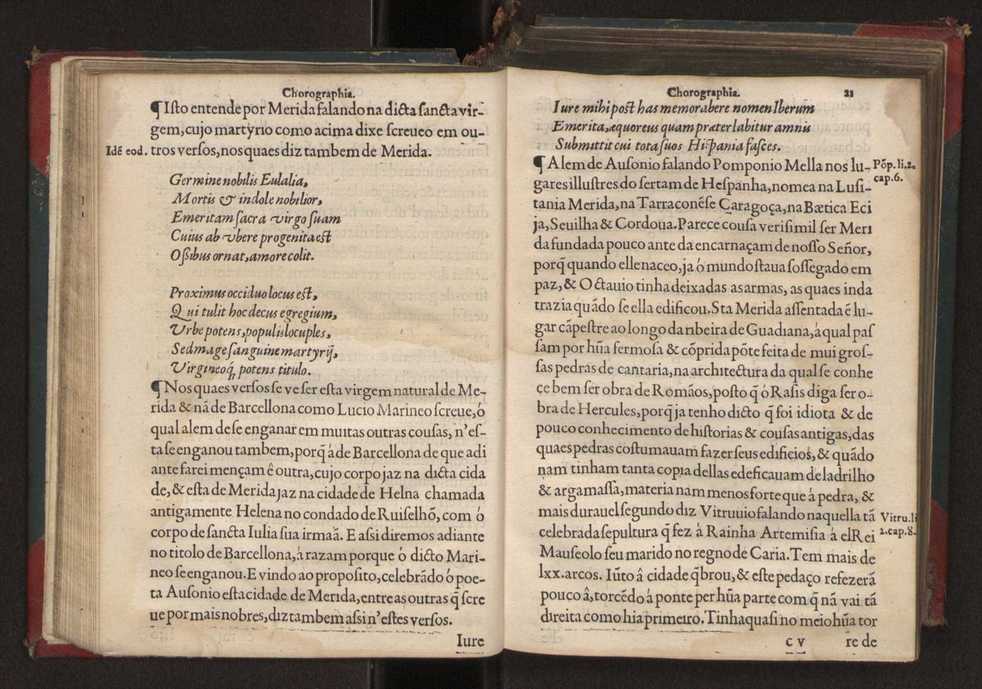 Chorographia.
¶ Isto entende por Merida falando na dicta sancta vir-
gem, cujo martyrio como acima dixe screueo em ou-
Idẽ eod.
tros versos, nos quaes diz tambem de Merida.
Germine nobilis Eulalia,
Mortis & indole nobilior,
Emeritam sacra virgo suam
Cuius ab vbere progenita est
Ossibus ornat, amore colit.
Proximus occiduo locus est,
Qui tulit hoc decus egregium,
Vrbe potens, populis locuples,
Sed mage sanguine martyrij,
Virgineoq; potens titulo.
¶ Nos quaes versos se ve ser esta virgem natural de Me-
rida & nã de Barcellona como Lucio Marineo screue, ó
qual alem de se enganar em muitas outras cousas, n'es-
ta se enganou tambem, porq̃ à de Barcellona de que adi
ante farei mençam ẽ outra, cujo corpo jaz na dicta cida
de, & esta de Merida jaz na cidade de Helna chamada
antigamente Helena no condado de Ruiselhõ, com ó
corpo de sancta Iulia sua irmaã. E assi diremos adiante
no titolo de Barcellona, á razam porque ó dicto Mari-
neo se enganou. E vindo ao proposito, celebrãdo ó poe-
ta Ausonio esta cidade de Merida, entre as outras q̃ scre
ue por mais nobres, diz tambem assi n'estes versos.
Iure
Chorographia. 21
Iure mihi post has memorabere nomen Iberum
Emerita, æquoreus quam præterlabitur amnis
Submittit cui tota suos Hispania fasces.
¶ Alem de Ausonio falando Pomponio Mella nos lu-
Põp. li. 2.
cap. 6.
gares illustres do sertam de Hespanha, nomea na Lusi-
tania Merida, na Tarraconẽse Çaragoça, na Bætica Eci
ja, Seuilha & Cordoua. Parece cousa verisimil ser Meri
da fundada pouco ante da encarnaçam de nosso Señor,
porq̃ quando elle naceo, ja ó mundo staua sossegado em
paz, & Octauio tinha deixadas as armas, as quaes inda
trazia quãdo se ella edificou. Sta Merida assentada ẽ lu-
gar cãpestre ao longo da ribeira de Guadiana, á qual pas
sam por hũa fermosa & cõprida põte feita de mui gros-
sas pedras de cantaria, na architectura da qual se conhe
ce bem ser obra de Romãos, posto q̃ ó Rasis diga ser o-
bra de Hercules, porq̃ ja tenho dicto q̃ foi idiota & de
pouco conhecimento de historias & cousas antigas, das
quaes pedras costumauam fazer seus edificios, & quãdo
nam tinham tanta copia dellas edeficauam de ladrilho
& argamassa, materia nam menos forte que á pedra, &
mais durauel segundo diz Vitruuio falando naquella tã
Vitru. li
2. cap. 8.
celebrada sepultura q̃ fez á Rainha Artemisia à el Rei
Mauseolo seu marido no regno de Caria. Tem mais de
lxx. arcos. Iũto â cidade q̃brou, & este pedaço refezerã
pouco â, torcẽdo á ponte per hũa parte com q̃ nã vai tã
direita como hia primeiro. Tinha quasi no meio hũa tor
c v re de